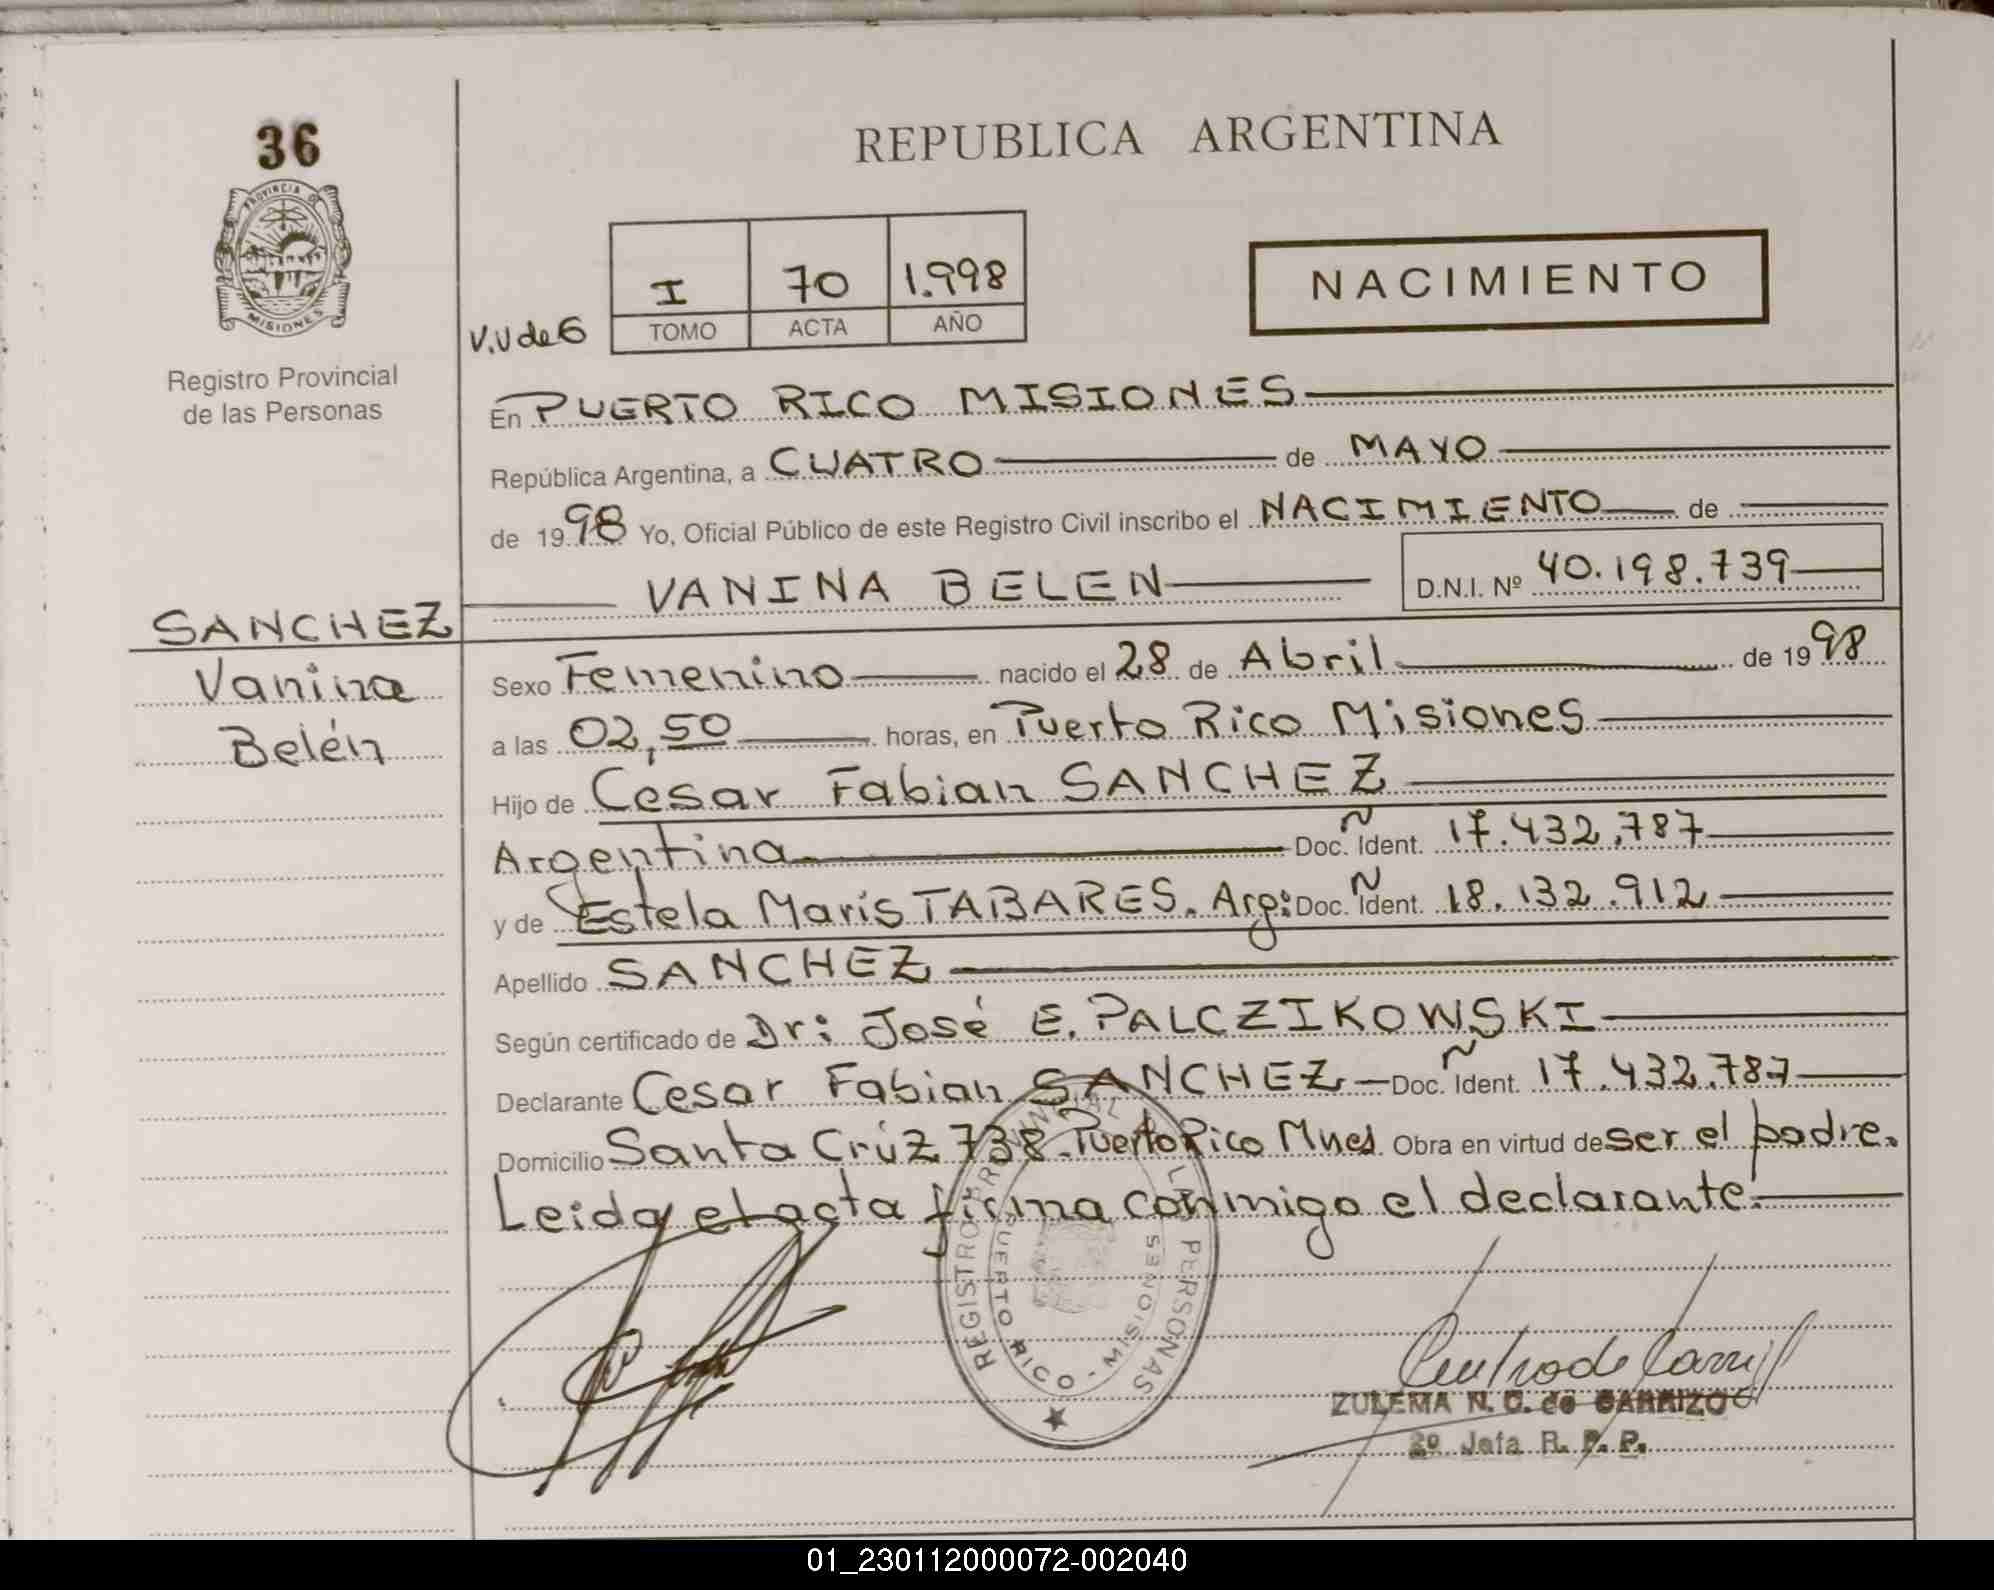 36
PROVINCIA DE
MISIONES
Registro Provincial
de las Personas
SANCHEZ
Vanina
Belén
REPUBLICA ARGENTINA
I 70 1.998
TOMO ACTA AÑO
V.V de 6
NACIMIENTO
En PUERTO RICO MISIONES
República Argentina, a CUATRO de MAYO
de 1998 Yo, Oficial Público de este Registro Civil inscribo el NACIMIENTO de
VANINA BELEN D.N.I. Nº 40.198.739
Sexo Femenino nacido el 28 de Abril de 1998
a las 02,50 horas, en Puerto Rico Misiones
Hijo de Cesar Fabian SANCHEZ
Argentina Doc. Ident. 17.432.787
y de Estela Maris TABARES. Arg: Doc. Ident. 18.132.912
Apellido SANCHEZ
Según certificado de Dr: José E. PALCZIKOWSKI
Declarante Cesar Fabian SANCHEZ Doc. Ident. 17.432.787
Domicilio Santa Crúz 738. Puerto Rico Mnes. Obra en virtud de ser el padre.
Leida el acta firma conmigo el declarante.
REGISTRO PROVINCIAL LAS PERSONAS
PUERTO RICO - MISIONES
ZULEMA N. C. de CARRIZO
2º Jefa R. P. P.
01_230112000072-002040